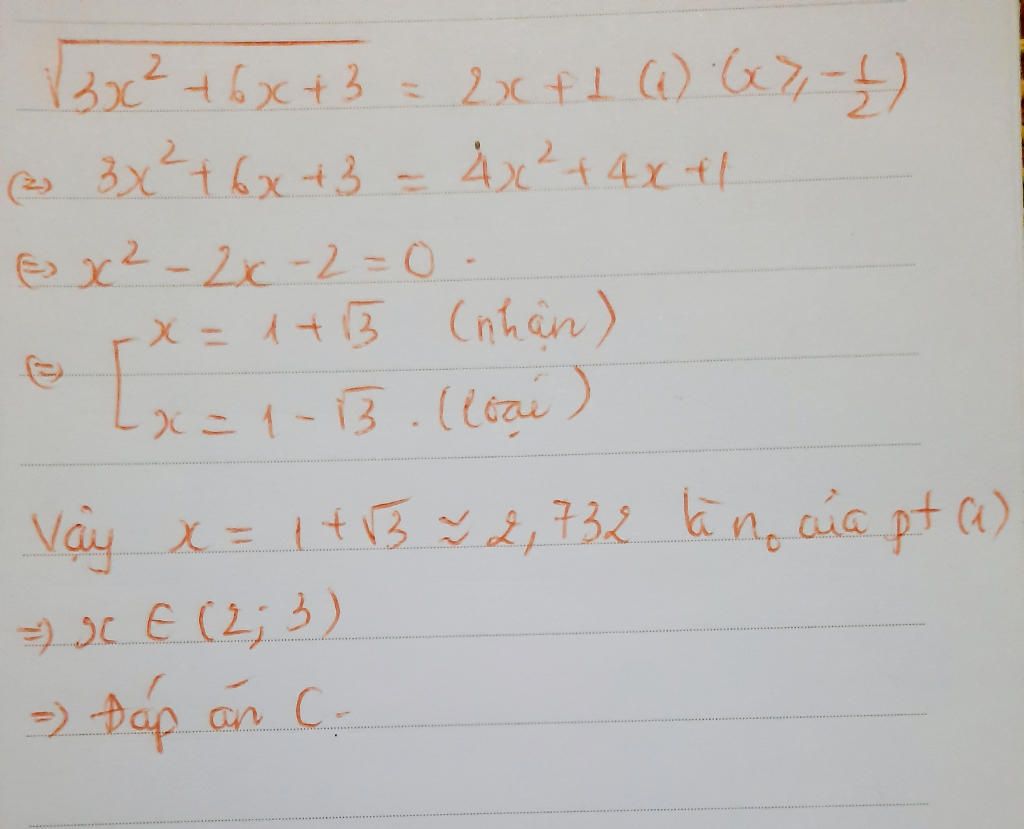 √(3x² + 6x + 3) = 2x + 1 (1) (x ⩾ -1/2)
(=) 3x² + 6x + 3 = 4x² + 4x + 1
(=) x² - 2x - 2 = 0.
(=) [ x = 1 + √3 (nhận)
x = 1 - √3. (loại)
Vậy x = 1 + √3 ≈ 2,732 là n₀ của pt (1)
=) x ∈ (2; 3)
=) Đáp án C.